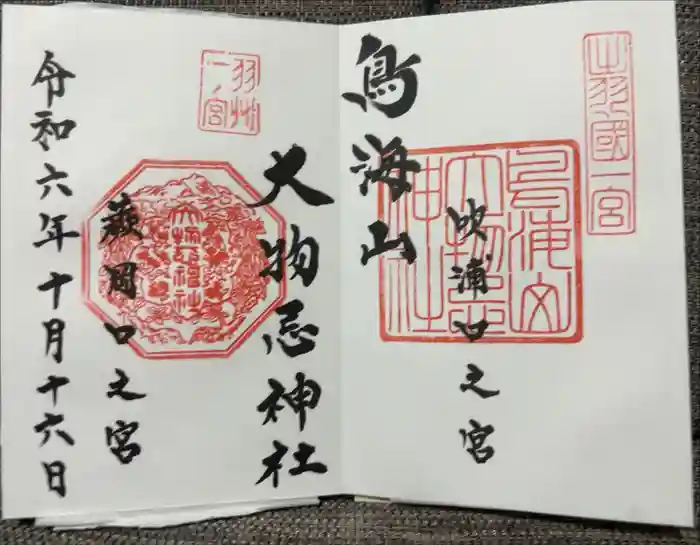 出羽國一宮
吹浦口之宮
鳥海山
鳥海山
大物忌
神社
大物忌神社
羽州
一ノ宮
蕨岡口之宮
令和六年十月十六日